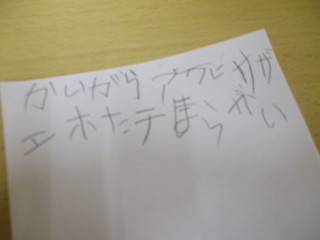 かいがら アワビ サザ
エ ホたテ まきがい